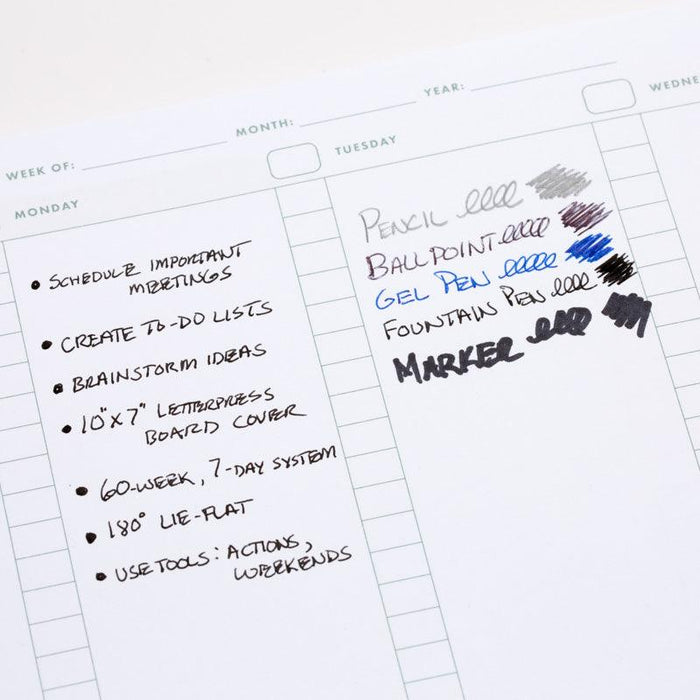 WEEK OF: MONTH: YEAR:
MONDAY
• SCHEDULE IMPORTANT
MEETINGS
• CREATE TO-DO LISTS
• BRAINSTORM IDEAS
• 10"X7" LETTERPRESS
BOARD COVER
• 60-WEEK, 7-DAY SYSTEM
• 180° LIE-FLAT
• USE TOOLS: ACTIONS,
WEEKENDS
TUESDAY
PENCIL
BALLPOINT
GEL PEN
FOUNTAIN PEN
MARKER
WEDNE